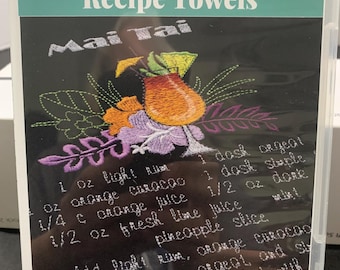 Recipe Towels
Mai Tai
1 oz light rum 1 dash orgeat
oz orange curacao 1 dash simple
1/4 c orange juice 1/2 oz dark
1/2 oz fresh lime juice mint
pineapple slice
light rum, orange curacao
juice, orgeat, and